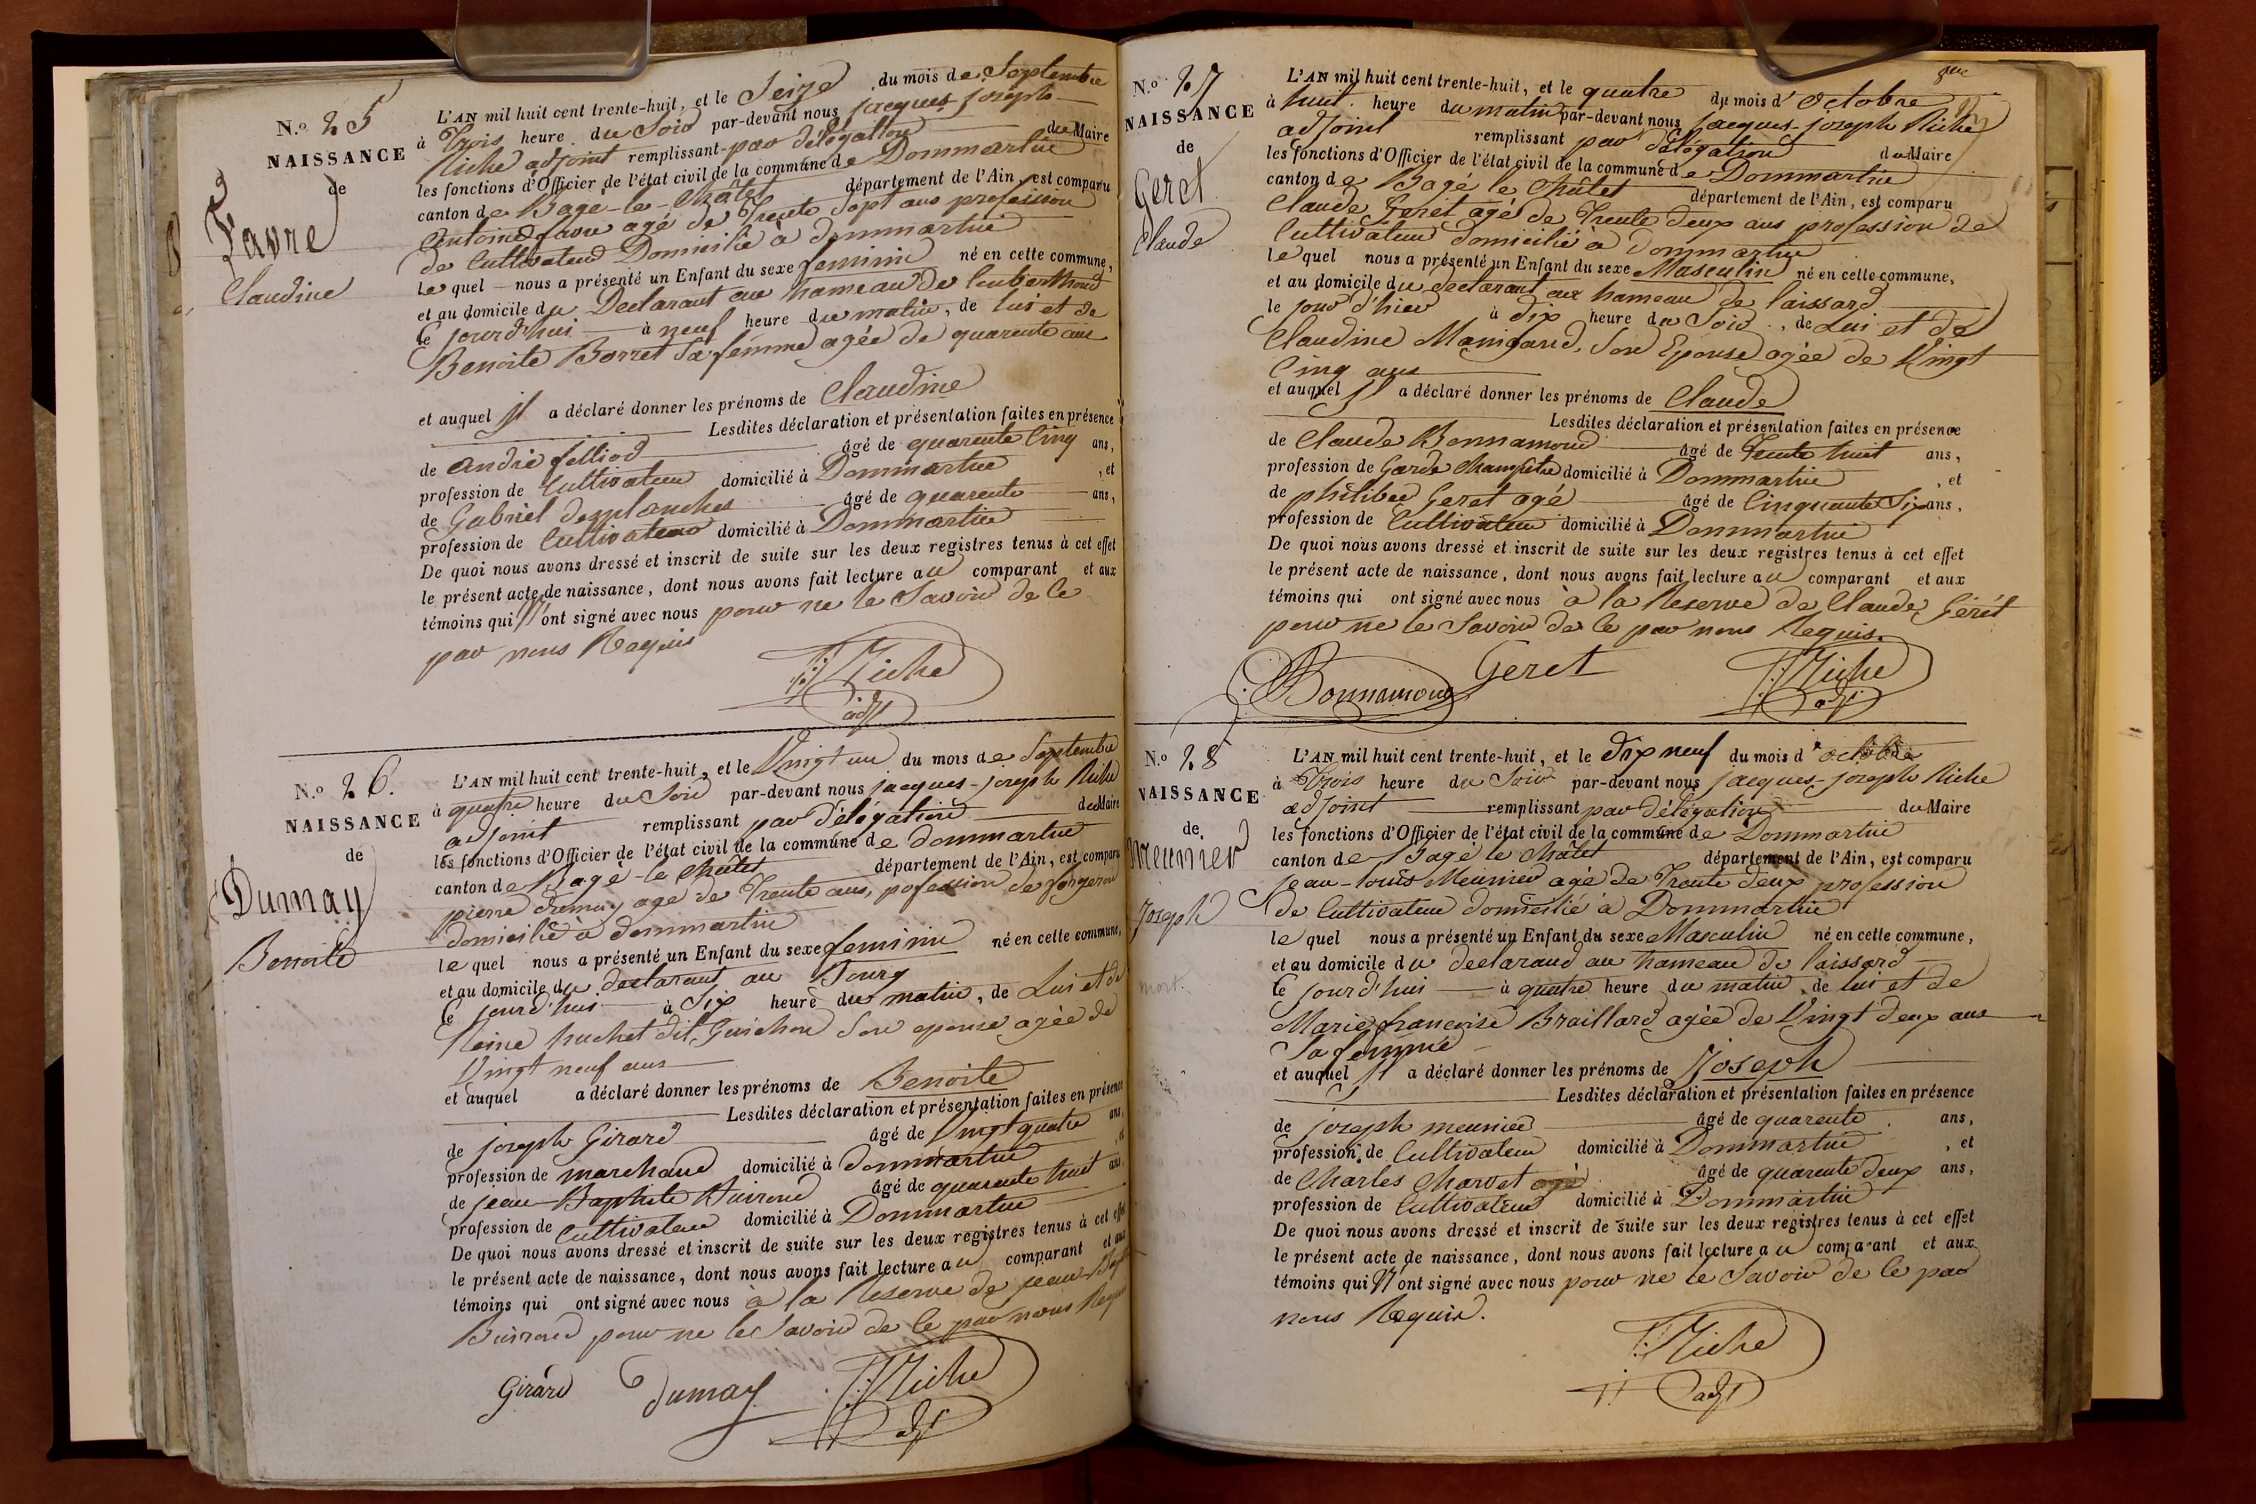 N.° 25
NAISSANCE
de
Favre
Claudine
L'AN mil huit cent trente-huit, et le Seize du mois de Septembre
à Trois heure du Soir par-devant nous jacques joseph
Riche adjoint remplissant par délégation du Maire
les fonctions d'Officier de l'état civil de la commune de Dommartin
canton de Bagé-le-Châtel département de l'Ain, est comparu
Antoine favre agé de Trente Sept ans profession
de Cultivateur Domicilié à dommartin
lequel nous a présenté un Enfant du sexe feminin né en cette commune,
et au domicile du Declarant au hameau de
le jourd'hui à neuf heure du matin, de lui et de
Benoite Borret Sa femme agée de quarente ans
et auquel il a déclaré donner les prénoms de Claudine
Lesdites déclaration et présentation faites en présence
de andré felliod âgé de quarente Cinq ans,
profession de Cultivateur domicilié à Dommartin, et
de Gabriel desplanches âgé de quarente ans,
profession de Cultivateur domicilié à Dommartin
De quoi nous avons dressé et inscrit de suite sur les deux registres tenus à cet effet
le présent acte de naissance, dont nous avons fait lecture au comparant et aux
témoins qui N'ont signé avec nous pour ne le Savoir de Ce
par nous Requis
Riche
adjt
N.° 26.
NAISSANCE
de
Dumay
Benoite
L'AN mil huit cent trente-huit, et le Vingt un du mois de Septembre
à quatre heure du Soir par-devant nous jacques-joseph Riche
adjoint remplissant par délégation du Maire
les fonctions d'Officier de l'état civil de la commune de dommartin
canton de Bagé-le Châtel département de l'Ain, est comparu
pierre dumay agé de Trente ans, pofession de forgeron
domicilié à dommartin
lequel nous a présenté un Enfant du sexe feminin né en cette commune,
et au domicile du declarant au Bourg
le jourd'hui à Six heure du matin, de Lui et de
Reine huchet dit Guichon Son epouse agée de
Vingt neuf ans
et auquel a déclaré donner les prénoms de Benoite
Lesdites déclaration et présentation faites en présence
de joseph Girard âgé de Vingt quatre ans,
profession de marchand domicilié à dommartin, et
de jean-Baptiste Buirond âgé de quarente huit ans,
profession de Cultivateur domicilié à Dommartin
De quoi nous avons dressé et inscrit de suite sur les deux registres tenus à cet effet
le présent acte de naissance, dont nous avons fait lecture au comparant et aux
témoins qui ont signé avec nous à la Reserve de jean-Bapte
Buirond pour ne le Savoir de Ce par nous Requis
Girard Dumay Riche
adjt
N.° 27
NAISSANCE
de
Geret
Claude
L'AN mil huit cent trente-huit, et le quatre du mois d'Octobre
à huit heure du matin par-devant nous jacques-joseph Riche
adjoint remplissant par délégation du Maire
les fonctions d'Officier de l'état civil de la commune de Dommartin
canton de Bagé le Châtel département de l'Ain, est comparu
Claude Geret agé de Trente deux ans profession de
Cultivateur domicilié à Dommartin
lequel nous a présenté un Enfant du sexe Masculin né en cette commune,
et au domicile du declarant aux hameau de laissard
le jour d'hier à dix heure du Soir, de Lui et de
Claudine Manigand, Son Epouse agée de Vingt
Cinq ans
et auquel il a déclaré donner les prénoms de Claude
Lesdites déclaration et présentation faites en présence
de Claude Bonnamour âgé de Trente huit ans,
profession de Garde Champetre domicilié à Dommartin, et
de philiber Geret agé âgé de Cinquante Six ans,
profession de Cultivateur domicilié à Dommartin
De quoi nous avons dressé et inscrit de suite sur les deux registres tenus à cet effet
le présent acte de naissance, dont nous avons fait lecture au comparant et aux
témoins qui ont signé avec nous à la Reserve de Claude Gerét
pour ne le Savoir de Ce par nous Requis.
Bonnamour Geret Riche
adjt
N.° 28
NAISSANCE
de
Meunier
Joseph
mort.
L'AN mil huit cent trente-huit, et le dix neuf du mois d'octobre
à Trois heure du Soir par-devant nous jacques-joseph Riche
adjoint remplissant par délégation du Maire
les fonctions d'Officier de l'état civil de la commune de Dommartin
canton de Bagé le Châtel département de l'Ain, est comparu
jean-louis Meunier agé de Trente deux profession
de Cultivateur domicilié à Dommartin
lequel nous a présenté un Enfant du sexe Masculin né en cette commune,
et au domicile du declarand au hameau de laissard
le jourd'hui à quatre heure du matin, de lui et de
Marie francoise Braillard agée de Vingt deux ans
Sa femme
et auquel il a déclaré donner les prénoms de Joseph
Lesdites déclaration et présentation faites en présence
de joseph meunier âgé de quarente ans,
profession de Cultivateur domicilié à Dommartin, et
de Charles Charvet agé âgé de quarente deux ans,
profession de Cultivateur domicilié à Dommartin
De quoi nous avons dressé et inscrit de suite sur les deux registres tenus à cet effet
le présent acte de naissance, dont nous avons fait lecture au comparant et aux
témoins qui N'ont signé avec nous pour ne le Savoir de Ce par
nous Requis.
Riche
adjt